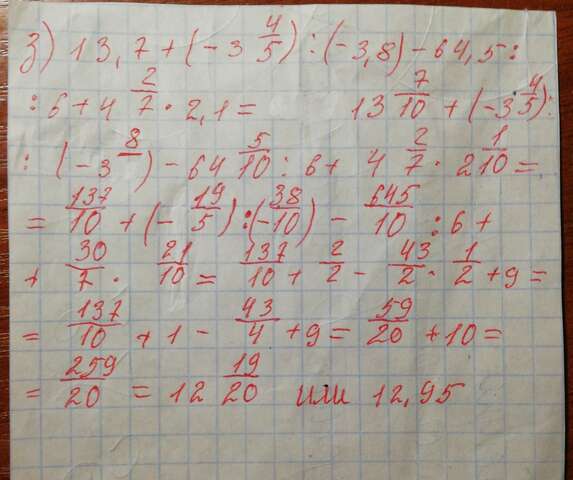 з) 13,7 + (-3 4/5) : (-3,8) - 64,5 :
: 6 + 4 2/7 · 2,1 = 13 7/10 + (-3 4/5) :
: (-3 8/ ) - 64 5/10 : 6 + 4 2/7 · 2 1/10 =
= 137/10 + (- 19/5) : (- 38/10) - 645/10 : 6 +
+ 30/7 · 21/10 = 137/10 + 2/2 - 43/2 · 1/2 + 9 =
= 137/10 + 1 - 43/4 + 9 = 59/20 + 10 =
= 259/20 = 12 19/20 или 12,95